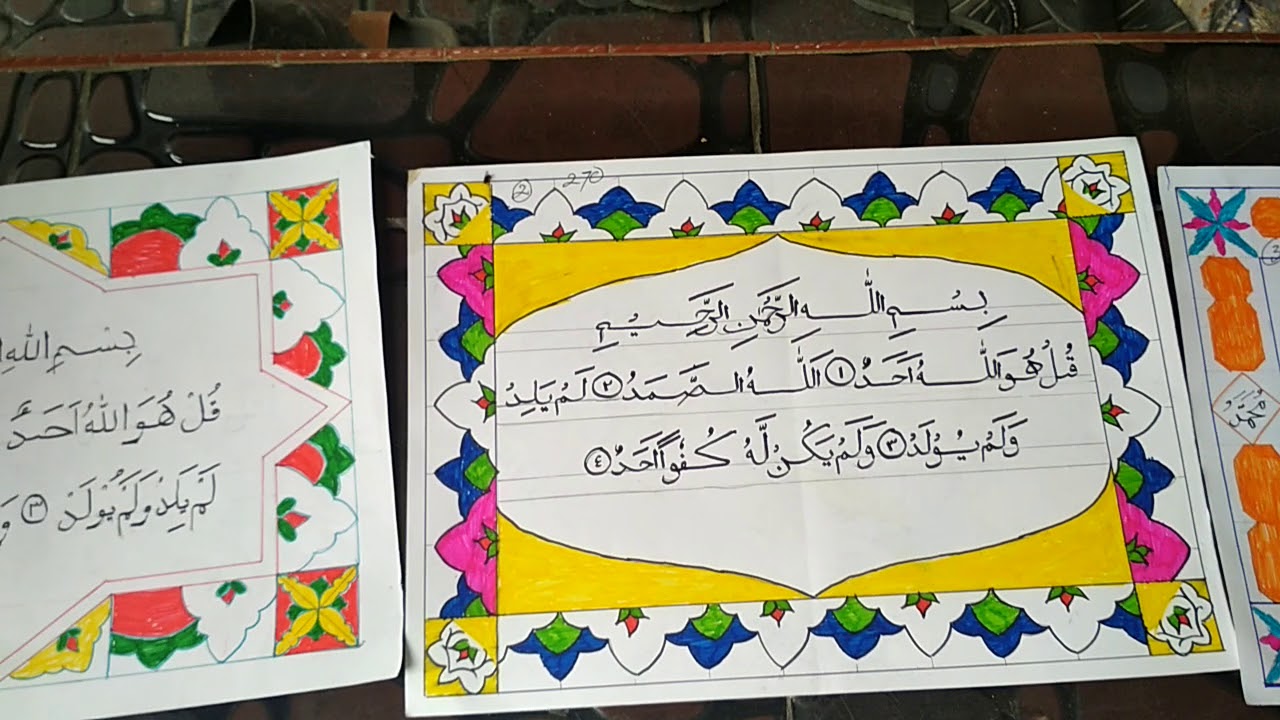 بِسْمِ اللّٰهِ
قُلْ هُوَ اللّٰهُ اَحَدٌ
لَمْ يَلِدْ وَلَمْ يُوْلَدْ ٣
2 270
بِسْمِ اللّٰهِ الرَّحْمٰنِ الرَّحِيْمِ
قُلْ هُوَ اللّٰهُ اَحَدٌ ١ اَللّٰهُ الصَّمَدُ ٢ لَمْ يَلِدْ
وَلَمْ يُوْلَدْ ٣ وَلَمْ يَكُنْ لَّهُ كُفُوًا اَحَدٌ ٤
مُحَمَّدٌ